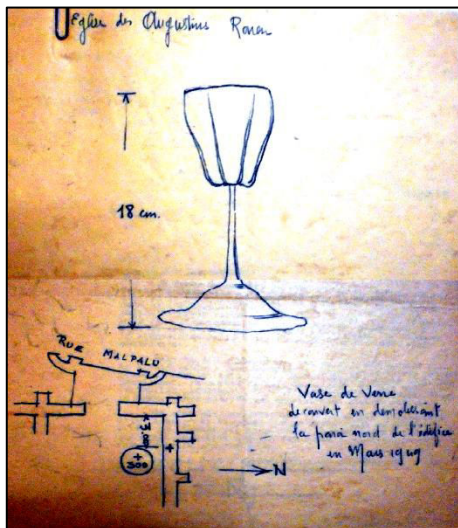 Eglise des Augustins Rouen
18 cm.
RUE MALPALU
+
300
N
Vase de Verre
découvert en démolissant
la paroi nord de l'édifice
en Mars 1949